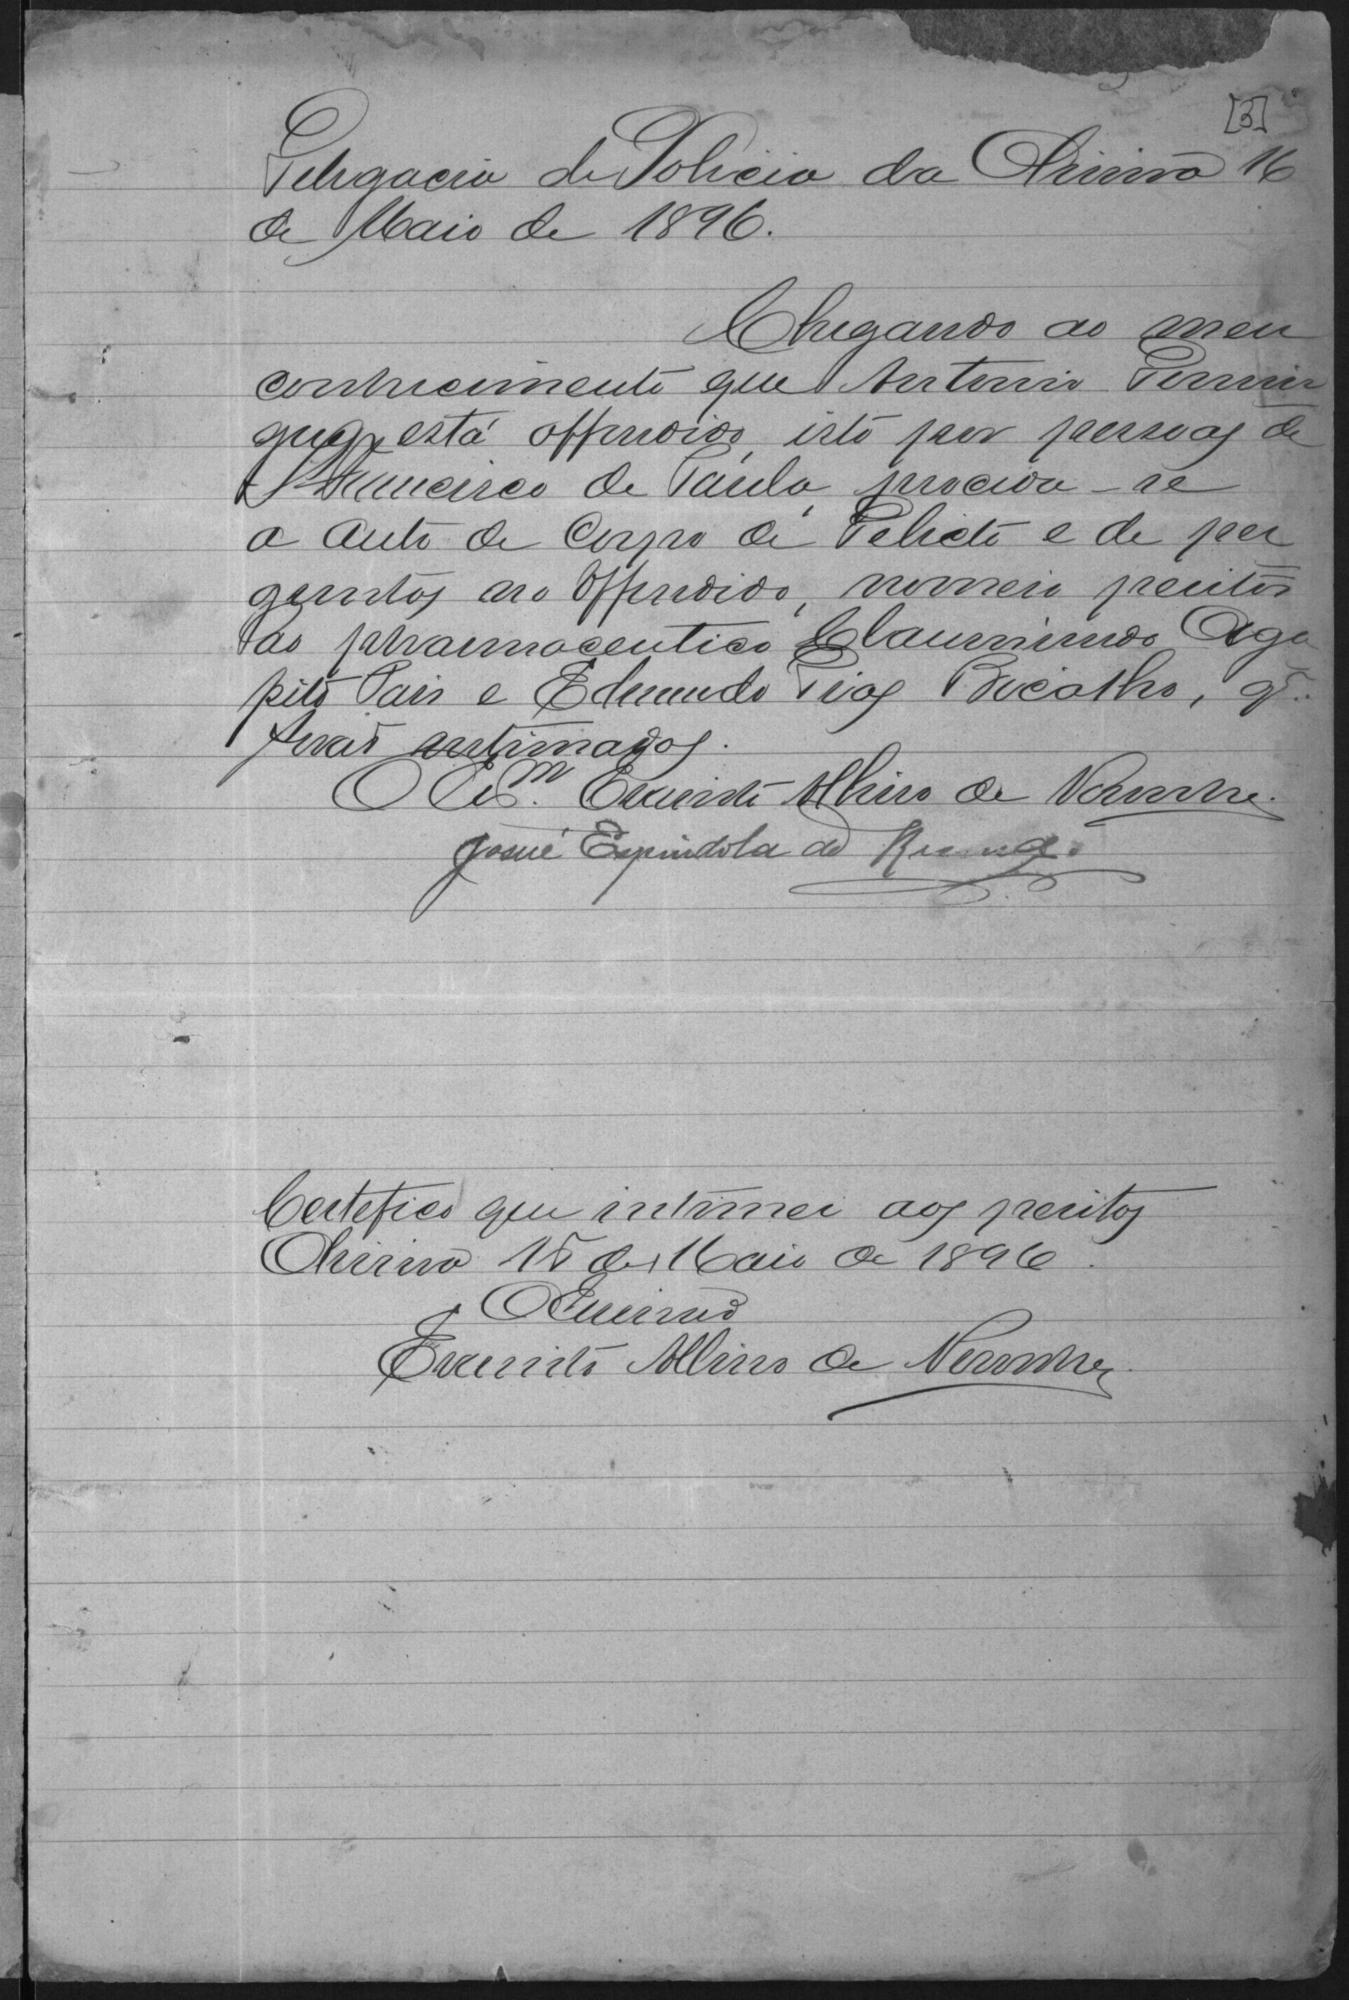 [3]
Delegacia de Policia da Oliveira 16
de Maio de 1896.
Chegando ao meu
conhecimento que Antonio Domin
gues está offendido, isto por pessoas de
S Francisco de Paula, proceda-se
a auto de Corpo de Delicto e de per
guntas ao Offendido, nomeio peritos
ao pharmaceutico Claurindo Aga
pito Pais e Edmundo Dias Bicalho, q.
serão intimados.
O Esm. Evaristo Albino de
Josué Espindola de
Certefico que intimei aos peritos
15 de Maio de 1896.
O Escrivão
Evaristo Albino de